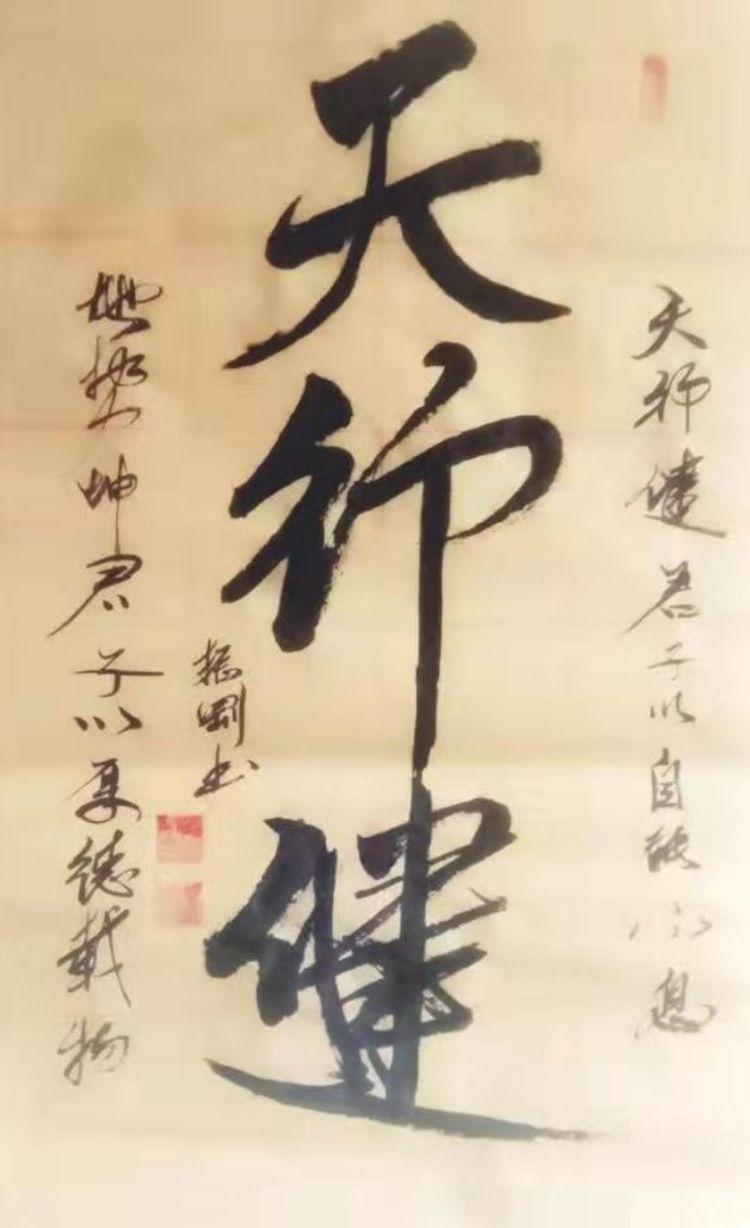 天行健君子以自强不息
天行健
振刚书
地势坤君子以厚德载物